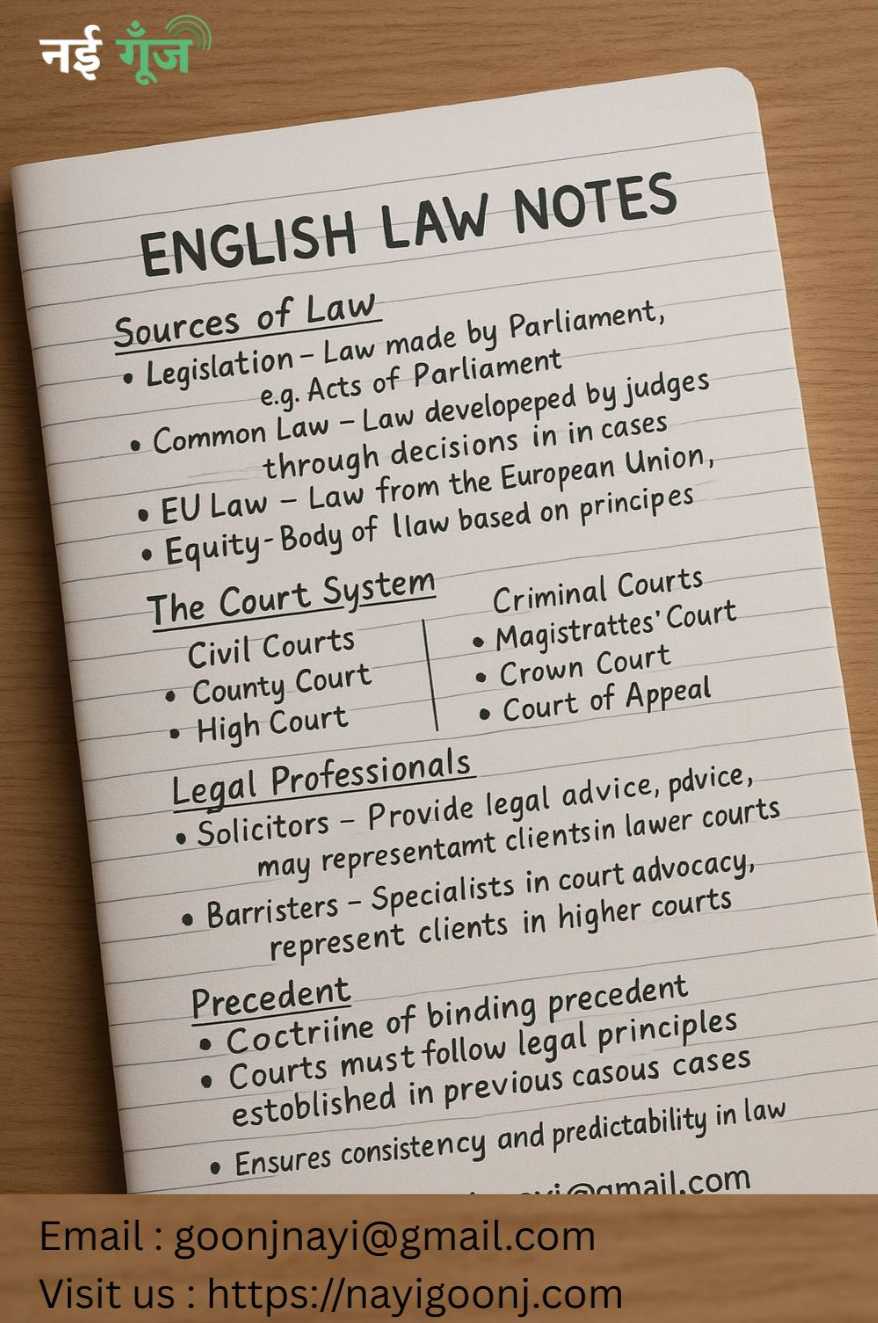 नई गूँज
ENGLISH LAW NOTES
Sources of Law
• Legislation – Law made by Parliament,
e.g. Acts of Parliament
• Common Law – Law developeped by judges
through decisions in in cases
• EU Law – Law from the European Union,
• Equity - Body of llaw based on principes
The Court System
Civil Courts
• County Court
• High Court
Criminal Courts
• Magistrattes' Court
• Crown Court
• Court of Appeal
Legal Professionals
• Solicitors – Provide legal advice, pdvice,
may representamt clientsin lawer courts
• Barristers – Specialists in court advocacy,
represent clients in higher courts
Precedent
• Coctriine of binding precedent
• Courts must follow legal principles
estoblished in previous casous cases
• Ensures consistency and predictability in law
@gmail.com
Email : goonjnayi@gmail.com
Visit us : https://nayigoonj.com